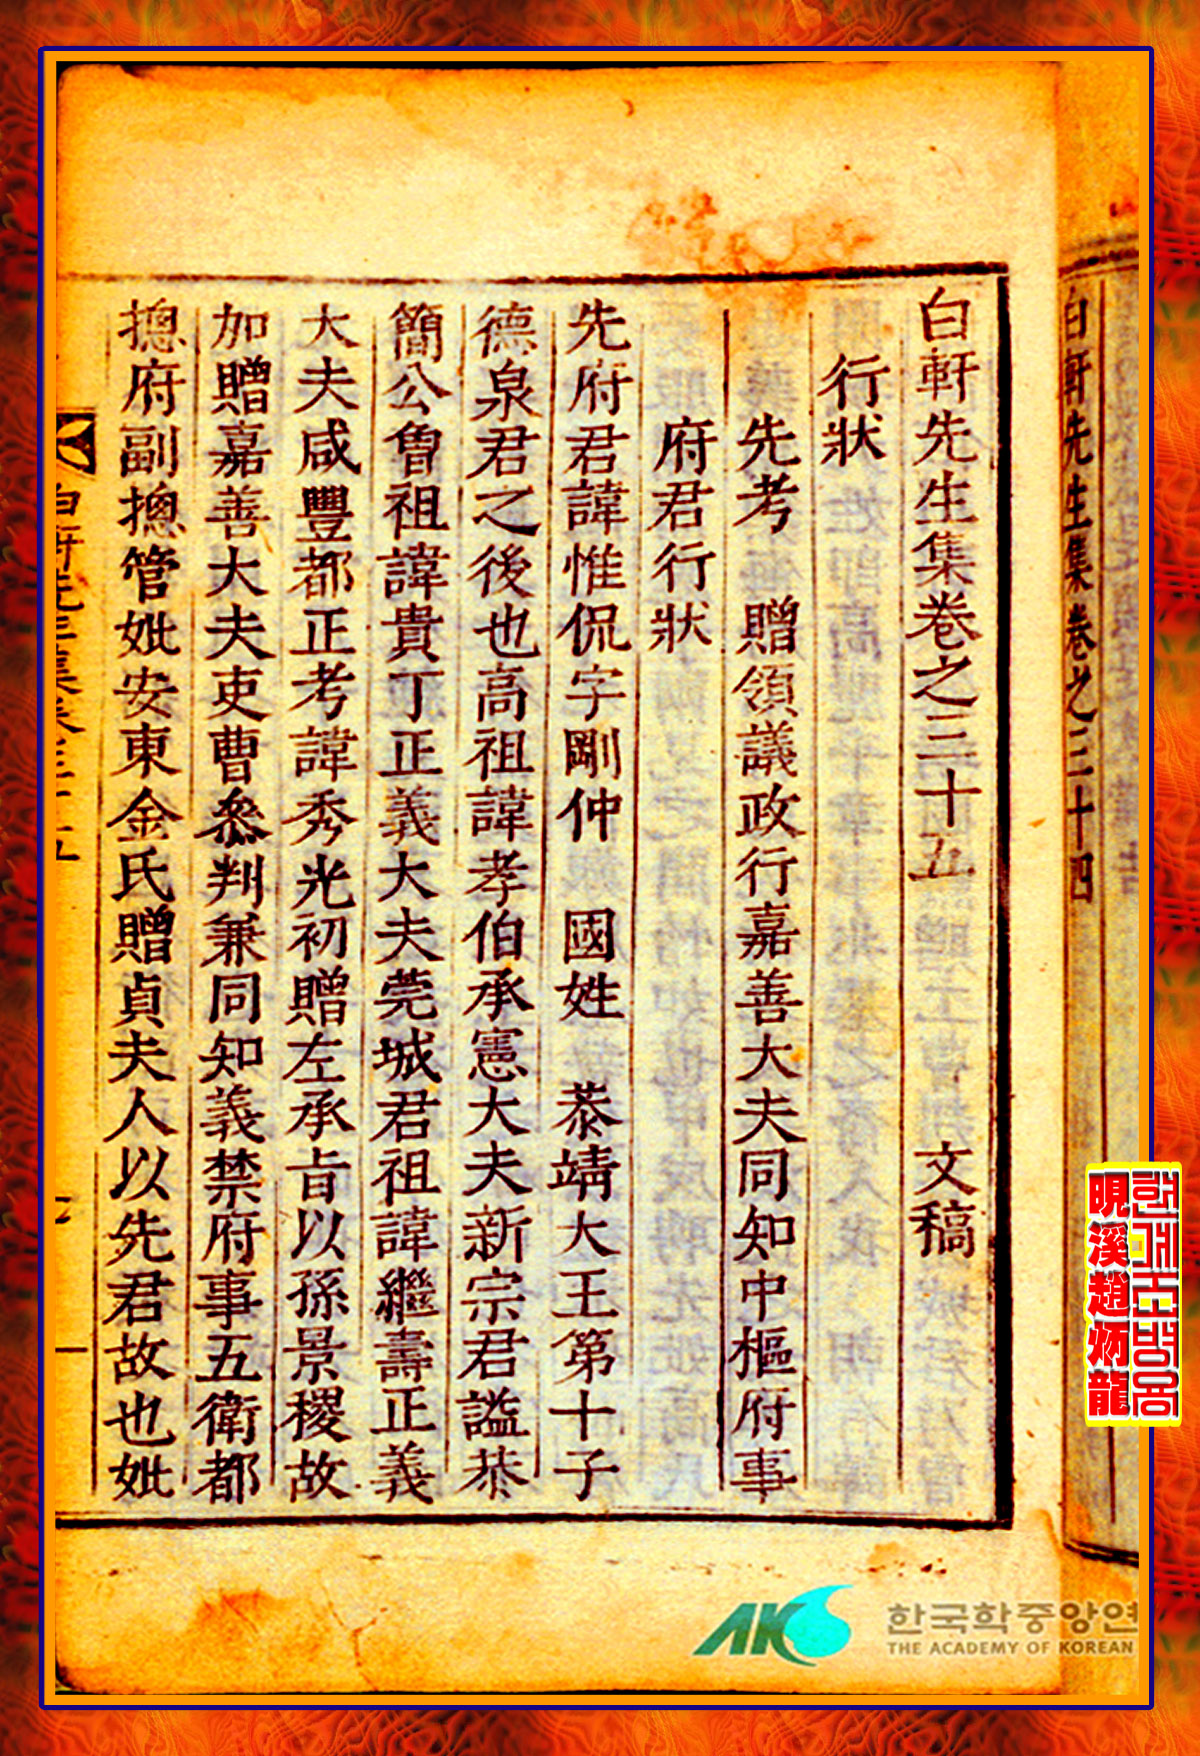 白軒先生集卷之三十四
白軒先生集卷之三十五 文稿
行狀
先考 贈領議政行嘉善大夫同知中樞府事
府君行狀
先府君諱惟侃字剛仲 國姓 恭靖大王第十子
德泉君之後也高祖諱孝伯承憲大夫新宗君謚恭
簡公曾祖諱貴丁正義大夫莞城君祖諱繼壽正義
大夫咸豐都正考諱秀光初贈左承旨以孫景稷故
加贈嘉善大夫吏曹叅判兼同知義禁府事五衛都
摠府副摠管妣安東金氏贈貞夫人以先君故也妣
白軒先生集卷三十五 一
현계조병용
晛溪趙炳龍
AKS 한국학중앙연
THE ACADEMY OF KOREAN